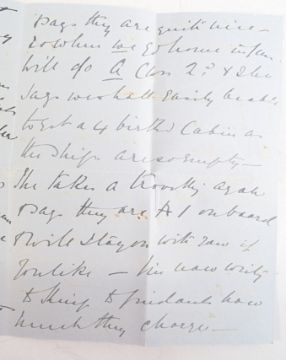 says they are quite nice —
So when we go home in Jan.
will do A Class 2? & she
says we shall easily be able
to get a 4 birth Cabin as
the ships are so empty —
She takes a
says they are A1 on board
& will stay on with you if
you like — I'm now writing
to King to find out how
much they charge —